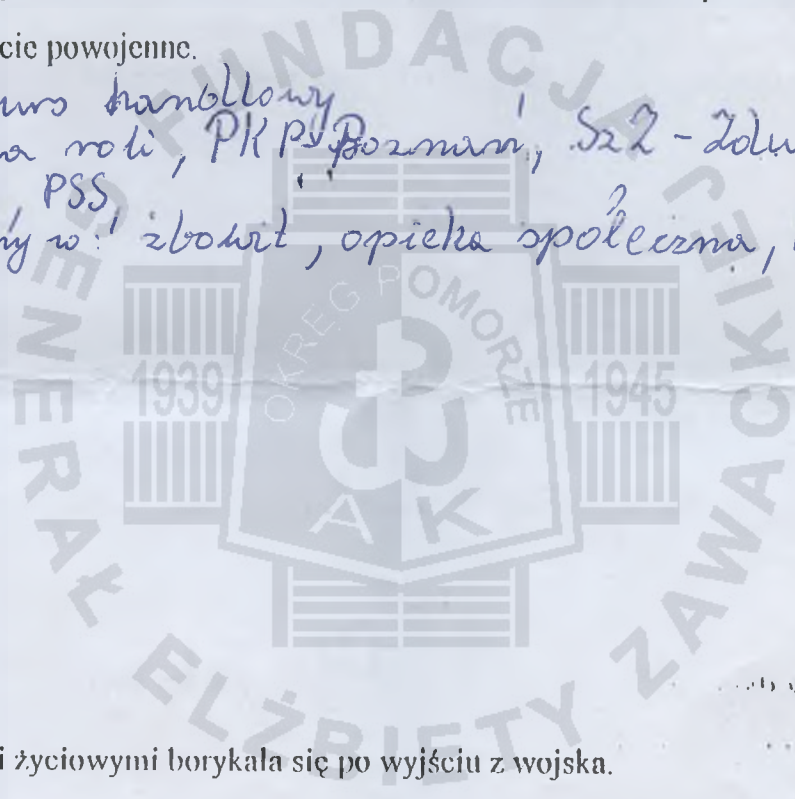 cie powojenne.
handlowy
na roli, PKP Poznań, SzZ -
PSS
ny w: zbowit, opieka społeczna,
i życiowymi borykała się po wyjściu z wojska.
FUNDACJA GENERAŁ ELŻBIETY ZAWACKIEJ
OKRĘG POMORZE
1939 1945
AK